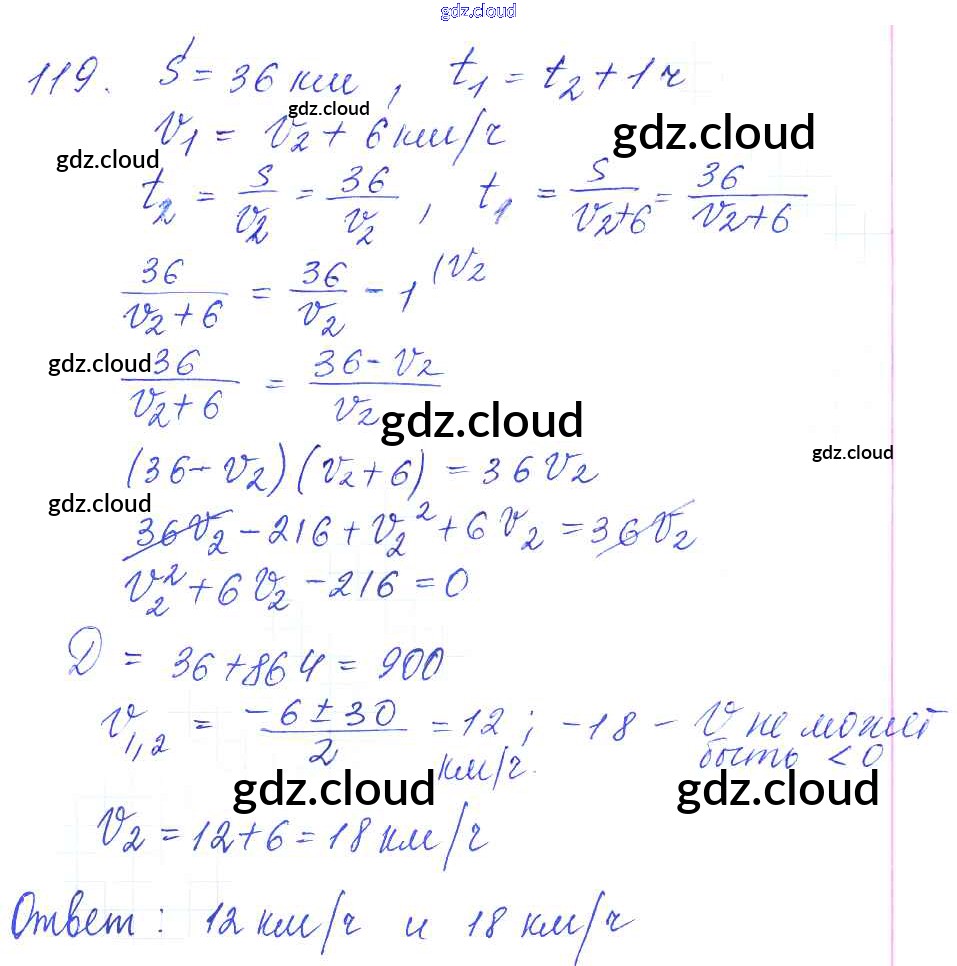 gdz.cloud
119. S = 36 км , t₁ = t₂ + 1 ч
gdz.cloud
v₁ = v₂ + 6 км/ч
gdz.cloud
gdz.cloud
t₂ = s/v₂ = 36/v₂ , t₁ = s/(v₂+6) = 36/(v₂+6)
36/(v₂+6) = 36/v₂ - 1 (v₂
gdz.cloud
36/(v₂+6) = (36-v₂)/v₂
gdz.cloud
(36-v₂)(v₂+6) = 36v₂
gdz.cloud
gdz.cloud
36v₂ - 216 + v₂² + 6v₂ = 36v₂
v₂² + 6v₂ - 216 = 0
D = 36 + 864 = 900
v₁,₂ = (-6 ± 30)/2 = 12 км/ч. ; -18 - v не может
быть < 0
gdz.cloud
gdz.cloud
v₂ = 12 + 6 = 18 км/ч
Ответ: 12 км/ч и 18 км/ч